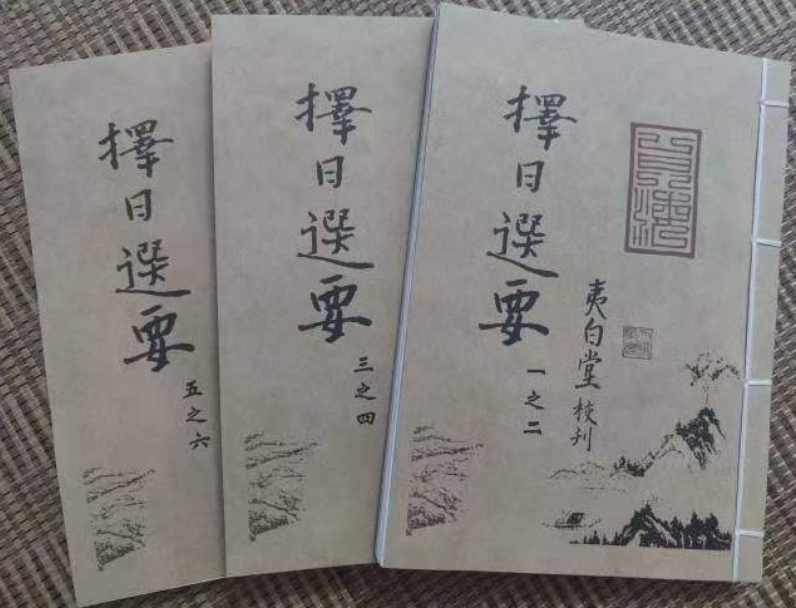 擇日選要
一之二
夷白堂校刊
擇日選要
三之四
擇日選要
五之六